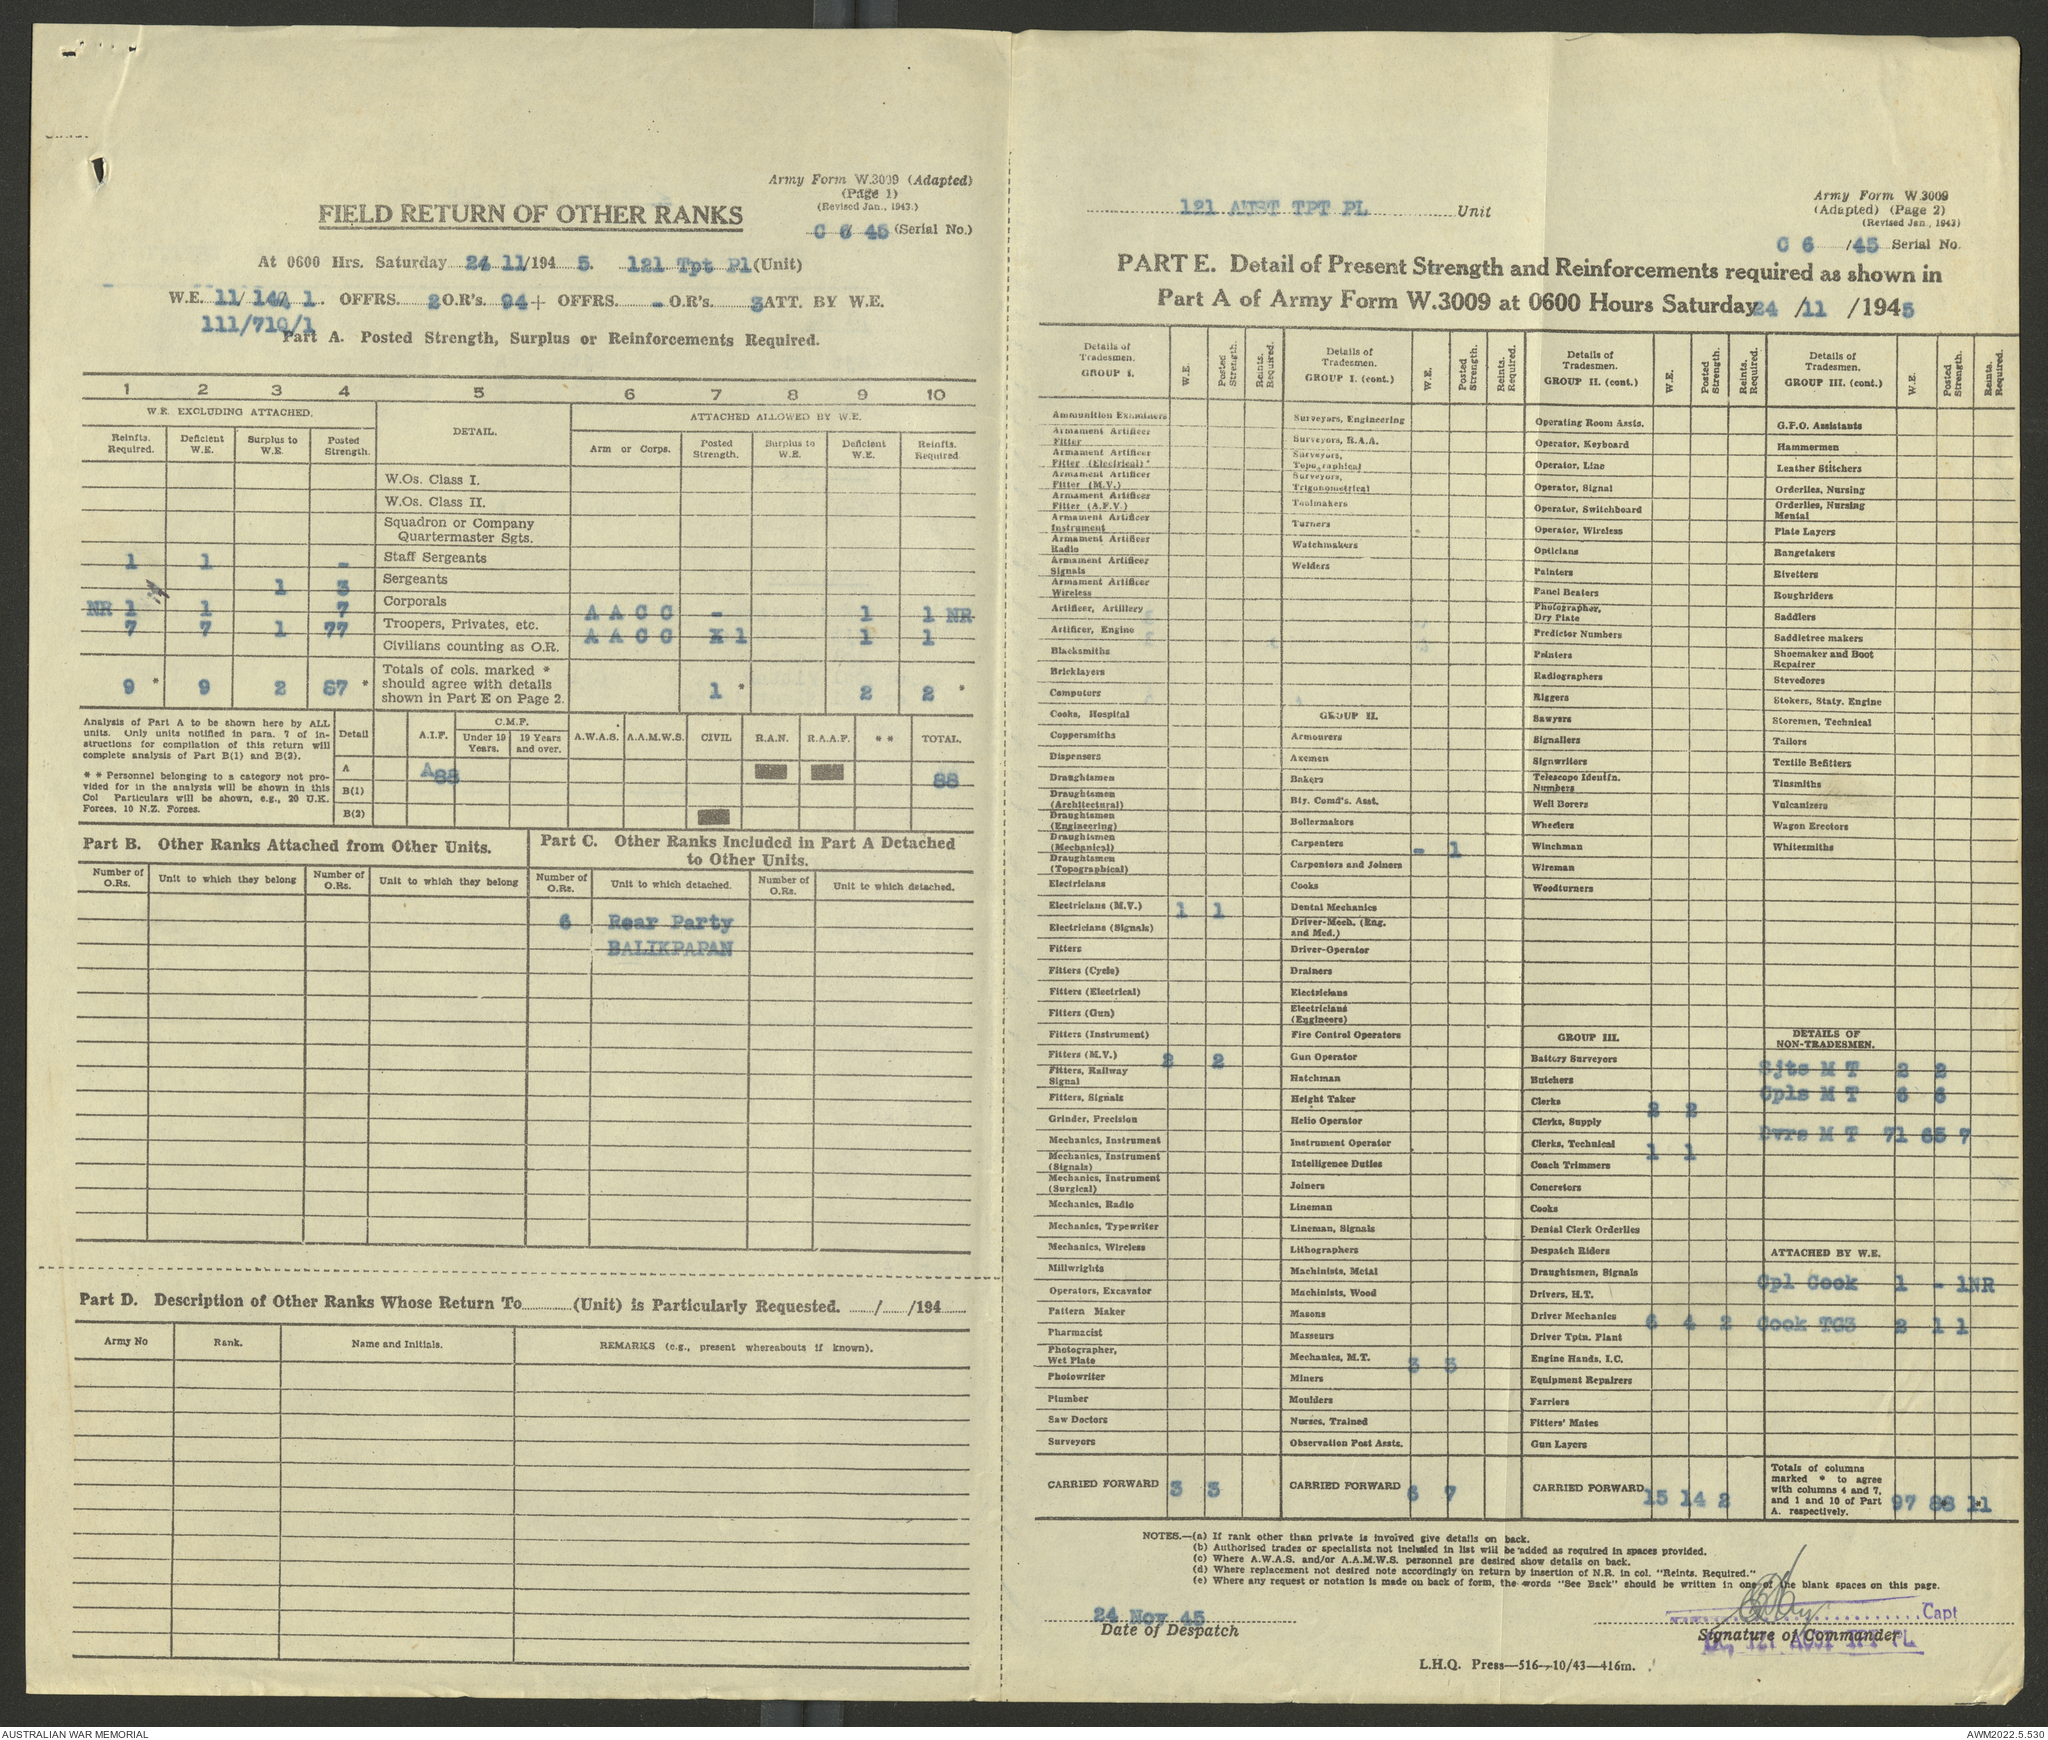 Army Form W.3009 (Adapted)
(Page 1)
(Revised Jan., 1943.)
FIELD RETURN OF OTHER RANKS
C 6 45 (Serial No.)
At 0600 Hrs. Saturday 24 11/194 5. 121 Tpt Pl (Unit)
W.E. 11/ 14 1 OFFRS. 2 O.R's. 94 + OFFRS. - O.R's. 3 ATT. BY W.E.
111/710/1
Part A. Posted Strength, Surplus or Reinforcements Required.
1 2 3 4 5 6 7 8 9 10
W.E. EXCLUDING ATTACHED. DETAIL. ATTACHED ALLOWED BY W.E.
Reinfts. Required. Deficient W.E. Surplus to W.E. Posted Strength. Arm or Corps. Posted Strength. Surplus to W.E. Deficient W.E. Reinfts. Required.
W.Os. Class I.
W.Os. Class II.
Squadron or Company
Quartermaster Sgts.
1 1 - Staff Sergeants
1 3 Sergeants
NR 1 1 7 Corporals A A C C - 1 1 NR
7 7 1 77 Troopers, Privates, etc. A A C C X 1 1 1
Civilians counting as O.R.
Totals of cols. marked *
should agree with details
shown in Part E on Page 2.
9 * 9 2 87 * 1 * 2 2 *
Analysis of Part A to be shown here by ALL
units. Only units notified in para. 7 of in-
structions for compilation of this return will
complete analysis of Part B(1) and B(2).
* * Personnel belonging to a category not pro-
vided for in the analysis will be shown in this
Col Particulars will be shown, e.g., 20 U.K.
Forces, 10 N.Z. Forces.
Detail A.I.F. C.M.F. Under 19 Years. 19 Years and over. A.W.A.S. A.A.M.W.S. CIVIL R.A.N. R.A.A.F. * * TOTAL.
A A88 88
B(1)
B(2)
Part B. Other Ranks Attached from Other Units.
Number of O.Rs. Unit to which they belong Number of O.Rs. Unit to which they belong
Part C. Other Ranks Included in Part A Detached
to Other Units.
Number of O.Rs. Unit to which detached. Number of O.Rs. Unit to which detached.
6 Rear Party
BALIKPAPAN
Part D. Description of Other Ranks Whose Return To (Unit) is Particularly Requested. / /194
Army No Rank. Name and Initials. REMARKS (e.g., present whereabouts if known).
121 AUST TPT PL Unit
Army Form W.3009
(Adapted) (Page 2)
(Revised Jan., 1943)
C 6 /45 Serial No.
PART E. Detail of Present Strength and Reinforcements required as shown in
Part A of Army Form W.3009 at 0600 Hours Saturday 24 /11 /1945
Details of Tradesmen. GROUP I. W.E. Posted Strength. Reints. Required.
Ammunition Examiners
Armament Artificer Fitter
Armament Artificer Fitter (Electrical)
Armament Artificer Fitter (M.V.)
Armament Artificer Fitter (A.F.V.)
Armament Artificer Instrument
Armament Artificer Radio
Armament Artificer Signals
Armament Artificer Wireless
Artificer, Artillery
Artificer, Engine
Blacksmiths
Bricklayers
Computors
Cooks, Hospital
Coppersmiths
Dispensers
Draughtsmen
Draughtsmen (Architectural)
Draughtsmen (Engineering)
Draughtsmen (Mechanical)
Draughtsmen (Topographical)
Electricians
Electricians (M.V.) 1 1
Electricians (Signals)
Fitters
Fitters (Cycle)
Fitters (Electrical)
Fitters (Gun)
Fitters (Instrument)
Fitters (M.V.) 2 2
Fitters, Railway Signal
Fitters, Signals
Grinder, Precision
Mechanics, Instrument
Mechanics, Instrument (Signals)
Mechanics, Instrument (Surgical)
Mechanics, Radio
Mechanics, Typewriter
Mechanics, Wireless
Millwrights
Operators, Excavator
Pattern Maker
Pharmacist
Photographer, Wet Plate
Photowriter
Plumber
Saw Doctors
Surveyors
CARRIED FORWARD 3 3
Details of Tradesmen. GROUP I. (cont.) W.E. Posted Strength. Reints. Required.
Surveyors, Engineering
Surveyors, R.A.A.
Surveyors, Topographical
Surveyors, Trigonometrical
Toolmakers
Turners
Watchmakers
Welders
GROUP II.
Armourers
Axemen
Bakers
Bty. Comd's. Asst.
Boilermakers
Carpenters - 1
Carpenters and Joiners
Cooks
Dental Mechanics
Driver-Mech. (Eng. and Med.)
Driver-Operator
Drainers
Electricians
Electricians (Engineers)
Fire Control Operators
Gun Operator
Hatchman
Height Taker
Helio Operator
Instrument Operator
Intelligence Duties
Joiners
Lineman
Lineman, Signals
Lithographers
Machinists, Metal
Machinists, Wood
Masons
Masseurs
Mechanics, M.T. 3 3
Miners
Moulders
Nurses, Trained
Observation Post Assts.
CARRIED FORWARD 6 7
Details of Tradesmen. GROUP II. (cont.) W.E. Posted Strength. Reints. Required.
Operating Room Assts.
Operator, Keyboard
Operator, Line
Operator, Signal
Operator, Switchboard
Operator, Wireless
Opticians
Painters
Panel Beaters
Photographer, Dry Plate
Predictor Numbers
Printers
Radiographers
Riggers
Sawyers
Signallers
Signwriters
Telescope Identfn. Numbers
Well Borers
Wheelers
Winchman
Wireman
Woodturners
GROUP III.
Battery Surveyors
Butchers
Clerks 2 2
Clerks, Supply
Clerks, Technical 1 1
Coach Trimmers
Concretors
Cooks
Dental Clerk Orderlies
Despatch Riders
Draughtsmen, Signals
Drivers, H.T.
Driver Mechanics 6 4 2
Driver Tptn. Plant
Engine Hands, I.C.
Equipment Repairers
Farriers
Fitters' Mates
Gun Layers
CARRIED FORWARD 15 14 2
Details of Tradesmen. GROUP III. (cont.) W.E. Posted Strength. Reints. Required.
G.P.O. Assistants
Hammermen
Leather Stitchers
Orderlies, Nursing
Orderlies, Nursing Mental
Plate Layers
Rangetakers
Rivetters
Roughriders
Saddlers
Saddletree makers
Shoemaker and Boot Repairer
Stevedores
Stokers, Staty. Engine
Storemen, Technical
Tailors
Textile Refitters
Tinsmiths
Vulcanizers
Wagon Erectors
Whitesmiths
DETAILS OF NON-TRADESMEN.
Sjts M T 2 2
Cpls M T 6 6
Dvrs M T 71 65 7
ATTACHED BY W.E.
Cpl Cook 1 - 1NR
Cook TG3 2 1 1
Totals of columns marked * to agree with columns 4 and 7, and 1 and 10 of Part A. respectively. 97 88 11
NOTES.—(a) If rank other than private is involved give details on back.
(b) Authorised trades or specialists not included in list will be added as required in spaces provided.
(c) Where A.W.A.S. and/or A.A.M.W.S. personnel are desired show details on back.
(d) Where replacement not desired note accordingly on return by insertion of N.R. in col. "Reints. Required."
(e) Where any request or notation is made on back of form, the words "See Back" should be written in one of the blank spaces on this page.
24 Nov 45
Date of Despatch
Capt
Signature of Commander
OC, 121 AUST TPT PL
L.H.Q. Press—516—10/43—416m.
AUSTRALIAN WAR MEMORIAL
AWM2022.5.530